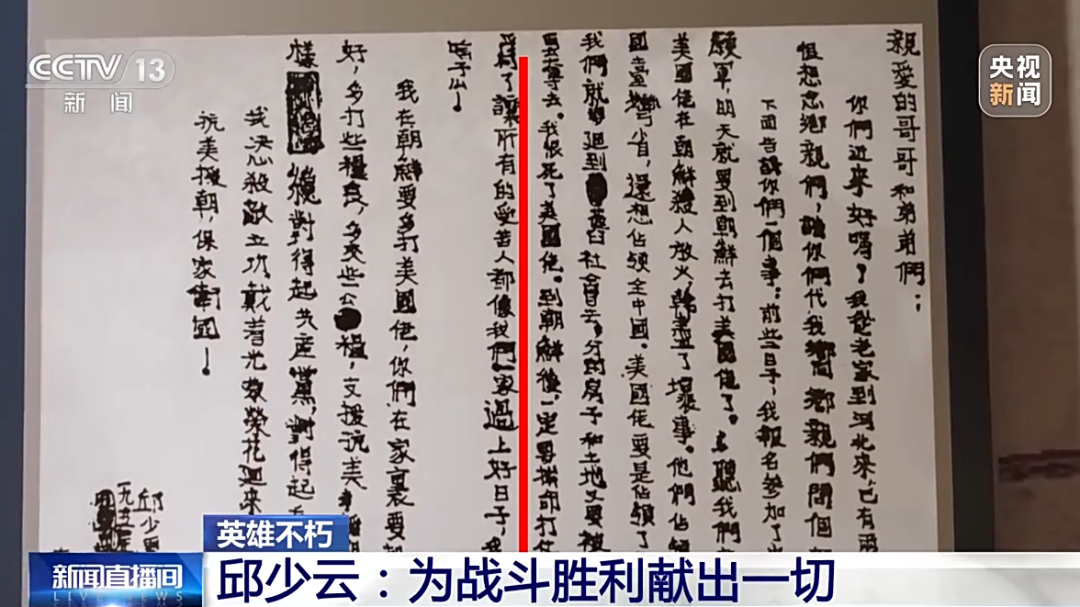 CCTV 13
新闻
央视
新闻
親愛的哥哥和弟弟們：
你們近來好嗎？我從老家到河北來，已有兩
想念鄉親們，請你們代我向鄉親們問個
下面告訴你們一個事：前些日子，我報名參加了
願軍，明天就要到朝鮮去打美國佬了。聽我們
美國佬在朝鮮殺人放火，幹盡了壞事。他們佔領
國臺灣省，還想佔領全中國。美國佬要是佔領了
我們就 迴到舊社會去，分的房子和土地又要被
奪去。我恨死了美國佬。到朝鮮後，一定要拚命打仗
為了讓所有的受苦人都像我們一家過上好日子，我
我在朝鮮要多打美國佬，你們在家裏要
好，多打些糧食，多交些公糧，支援抗美
樣 纔對得起共產黨，對得起
我決心殺敵立功，戴着光榮花迴來
抗美援朝，保家衛國！
邱少
一九五
英雄不朽
新闻直播间
LIVE NEWS
邱少云：为战斗胜利献出一切